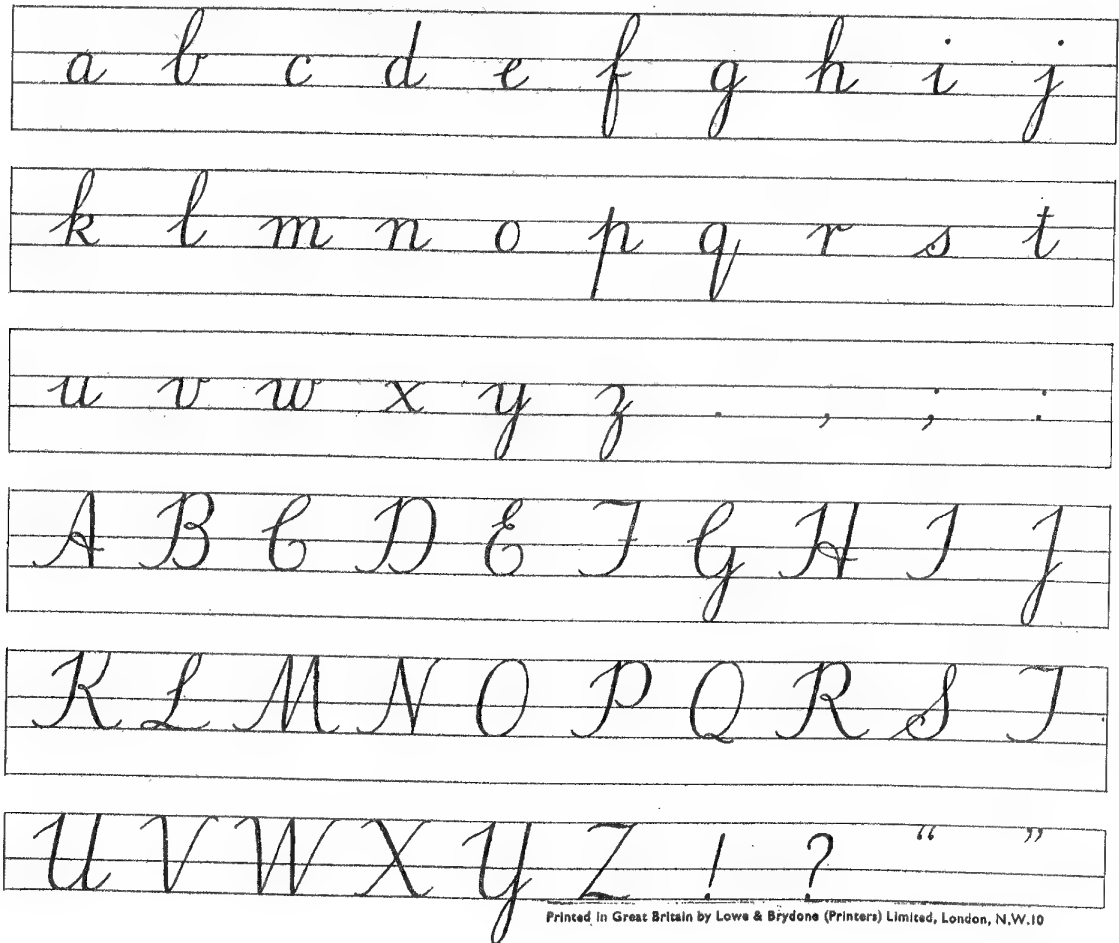 a b c d e f g h i j
k l m n o p q r s t
u v w x y z . , ; :
A B C D E F G H I J
K L M N O P Q R S T
U V W X Y Z ! ? “ ”
Printed in Great Britain by Lowe & Brydone (Printers) Limited, London, N.W.10